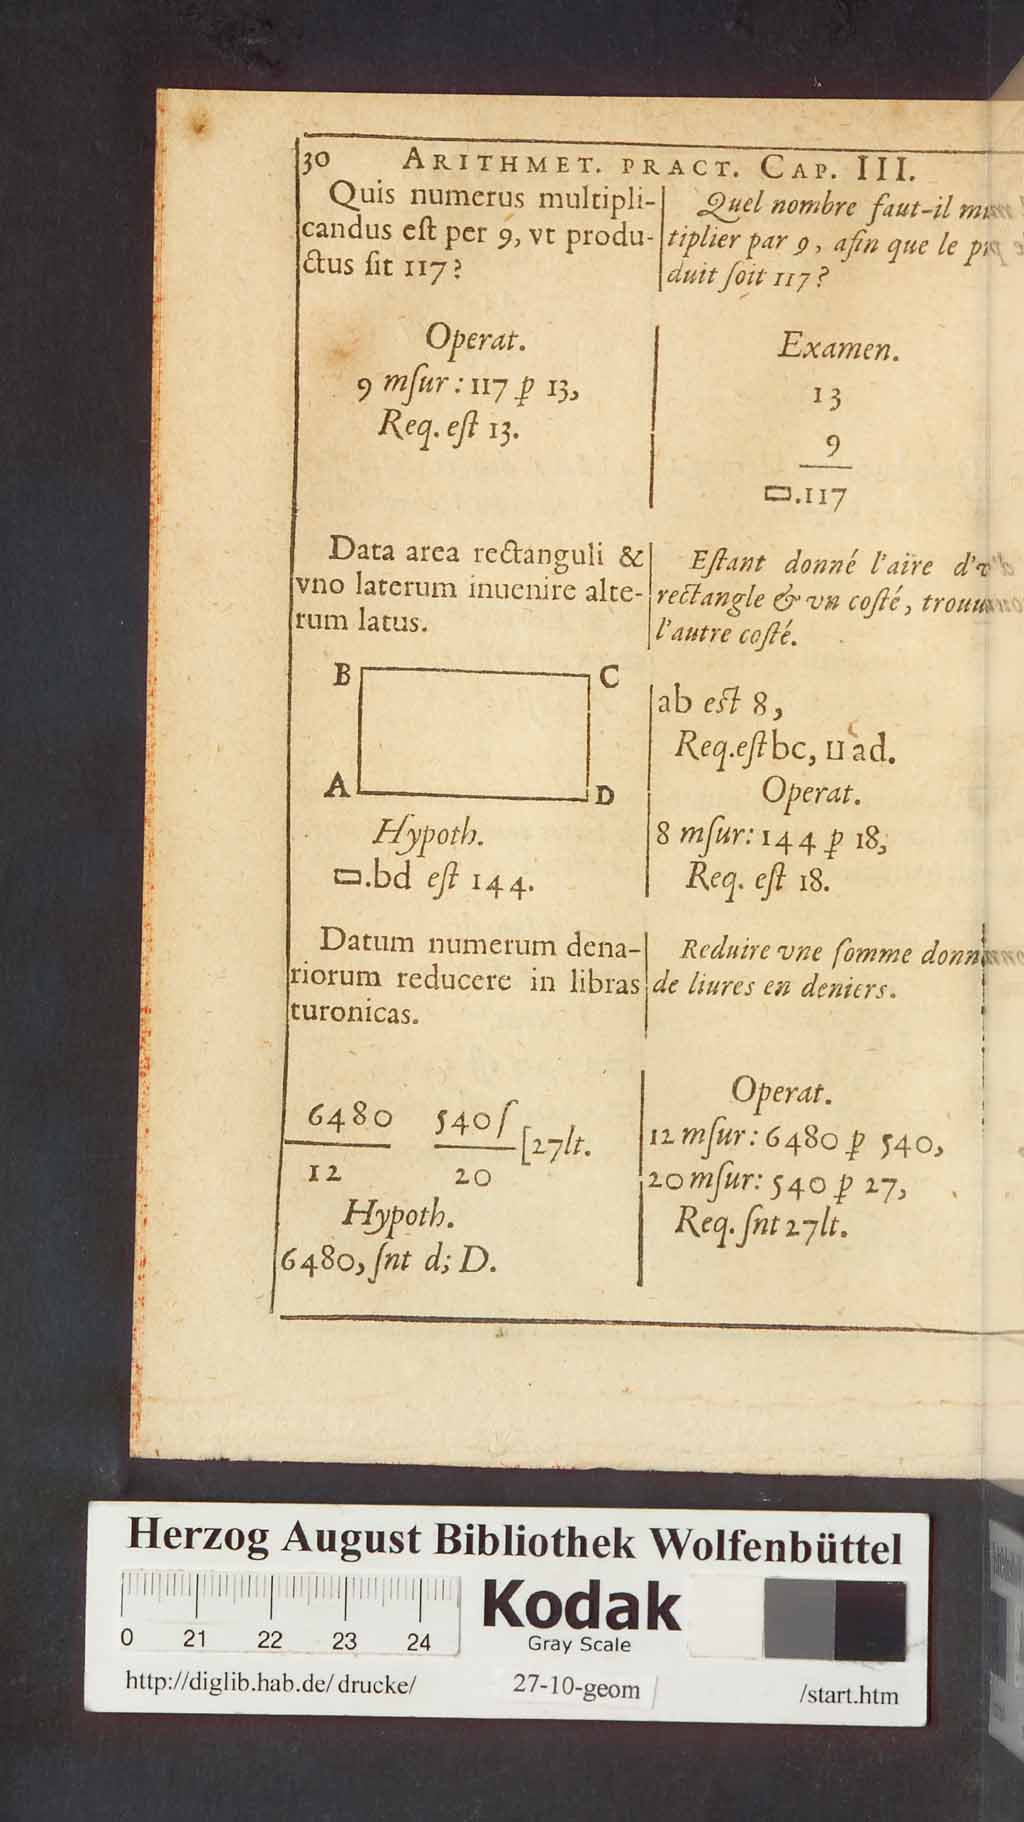 30 ARITHMET. PRACT. CAP. III.
Quis numerus multipli-
candus eſt per 9, vt produ-
ctus ſit 117?
Quel nombre faut-il
tiplier par 9, afin que le
duit ſoit 117?
Operat.
9 mſur: 117 ꝑ 13,
Req. eſt 13.
Examen.
13
9
▭.117
Data area rectanguli &
vno laterum inuenire alte-
rum latus.
Eſtant donné l'aire
rectangle & vn coſté,
l'autre coſté.
B C
A D
Hypoth.
▭.bd eſt 144.
ab eſt 8,
Req. eſt bc, u ad.
Operat.
8 mſur: 144 ꝑ 18,
Req. eſt 18.
Datum numerum dena-
riorum reducere in libras
turonicas.
Reduire vne ſomme
de liures en deniers.
6480 540ſ [27lt.
12 20
Hypoth.
6480, ſnt d; D.
Operat.
12 mſur: 6480 ꝑ 540,
20 mſur: 540 ꝑ 27,
Req. ſnt 27lt.
Herzog August Bibliothek Wolfenbüttel
0 21 22 23 24
Kodak
Gray Scale
http://diglib.hab.de/drucke/ 27-10-geom /start.htm